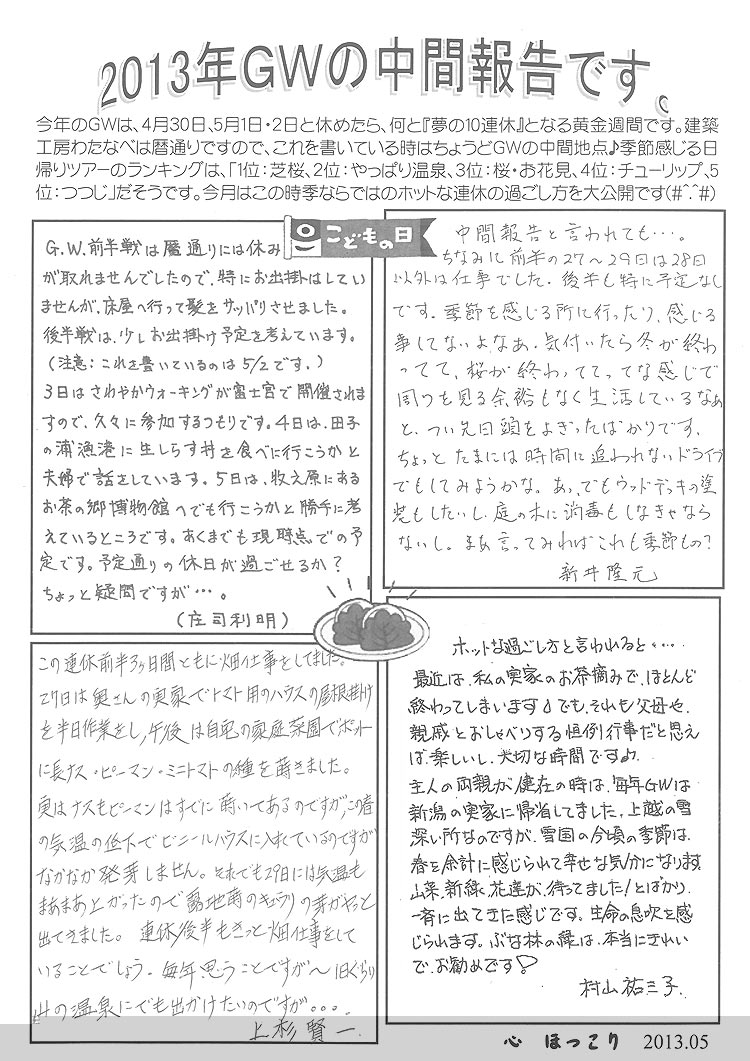 2013年GWの中間報告です。
今年のGWは、4月30日、5月1日・2日と休めたら、何と『夢の10連休』となる黄金週間です。建築
工房わたなべは暦通りですので、これを書いている時はちょうどGWの中間地点♪季節感じる日
帰りツアーのランキングは、「1位：芝桜、2位：やっぱり温泉、3位：桜・お花見、4位：チューリップ、5
位：つつじ」だそうです。今月はこの時季ならではのホットな連休の過ごし方を大公開です(#^.^#)
こどもの日
G.W.前半戦は暦通りには休み
が取れませんでしたので、特にお出掛はしてい
ませんが、床屋へ行って髪をサッパリさせました。
後半戦は、少しお出掛け予定を考えています。
(注意：これを書いているのは5/2です。)
3日はさわやかウォーキングが富士宮で開催されま
すので、久々に参加するつもりです。4日は、田子
の浦漁港に生しらす丼を食べに行こうかと
夫婦で話をしています。5日は、牧之原にある
お茶の郷博物館へでも行こうかと勝手に考
えているところです。あくまでも現時点での予
定です。予定通りの休日が過ごせるか？
ちょっと疑問ですが・・・。
(庄司利明)
中間報告と言われても・・・。
ちなみに前半の27〜29日は28日
以外は仕事でした。後半も特に予定なし
です。季節を感じる所に行ったり、感じる
事してないよなあ。気付いたら冬が終わ
ってて、桜が終わっててってな感じで
周りを見る余裕もなく生活しているなぁ
と、つい先日頭をよぎったばかりです。
ちょっとたまには時間に追われないドライブ
でもしてみようかな。あっ、でもウッドデッキの塗
装もしたいし、庭の木に消毒もしなきゃなら
ないし。まぁ言ってみればこれも季節もの？
新井隆元
この連休前半3ヶ日間ともに畑仕事をしてました。
27日は奥さんの実家でトマト用のハウスの屋根掛け
を半日作業をし、午後は自宅の家庭菜園でポット
に長ナス・ピーマン・ミニトマトの種を蒔きました。
実はナスもピーマンはすでに蒔いてあるのですが、この春
の気温の低下でビニールハウスに入れているのですが
なかなか発芽しません。それでも29日には気温も
まあまあ上がったので露地南のキュウリの芽がやっと
出てきました。連休後半もきっと畑仕事をして
いることでしょう。毎年思うことですが〜1日ぐらい
山の温泉にでも出かけたいのですが。。。
上杉賢一
ホットな過ごし方と言われると・・・・
最近は、私の実家のお茶摘みで、ほとんど
終わってしまいます♪でも、それも父母や、
親戚とおしゃべりする恒例行事だと思え
ば、楽しいし、大切な時間です♪
主人の両親が健在の時は、毎年GWは
新潟の実家に帰省してました。上越の雪
深い所なのですが、雪国の今頃の季節は、
春を余計に感じられて幸せな気分になります。
山菜、新緑、花達が、待ってました！とばかり、
一斉に出てきた感じです。生命の息吹を感
じられます。ぶな林の緑は、本当にきれい
で、お勧めです♡
村山祐三子
心 ほっこり 2013.05